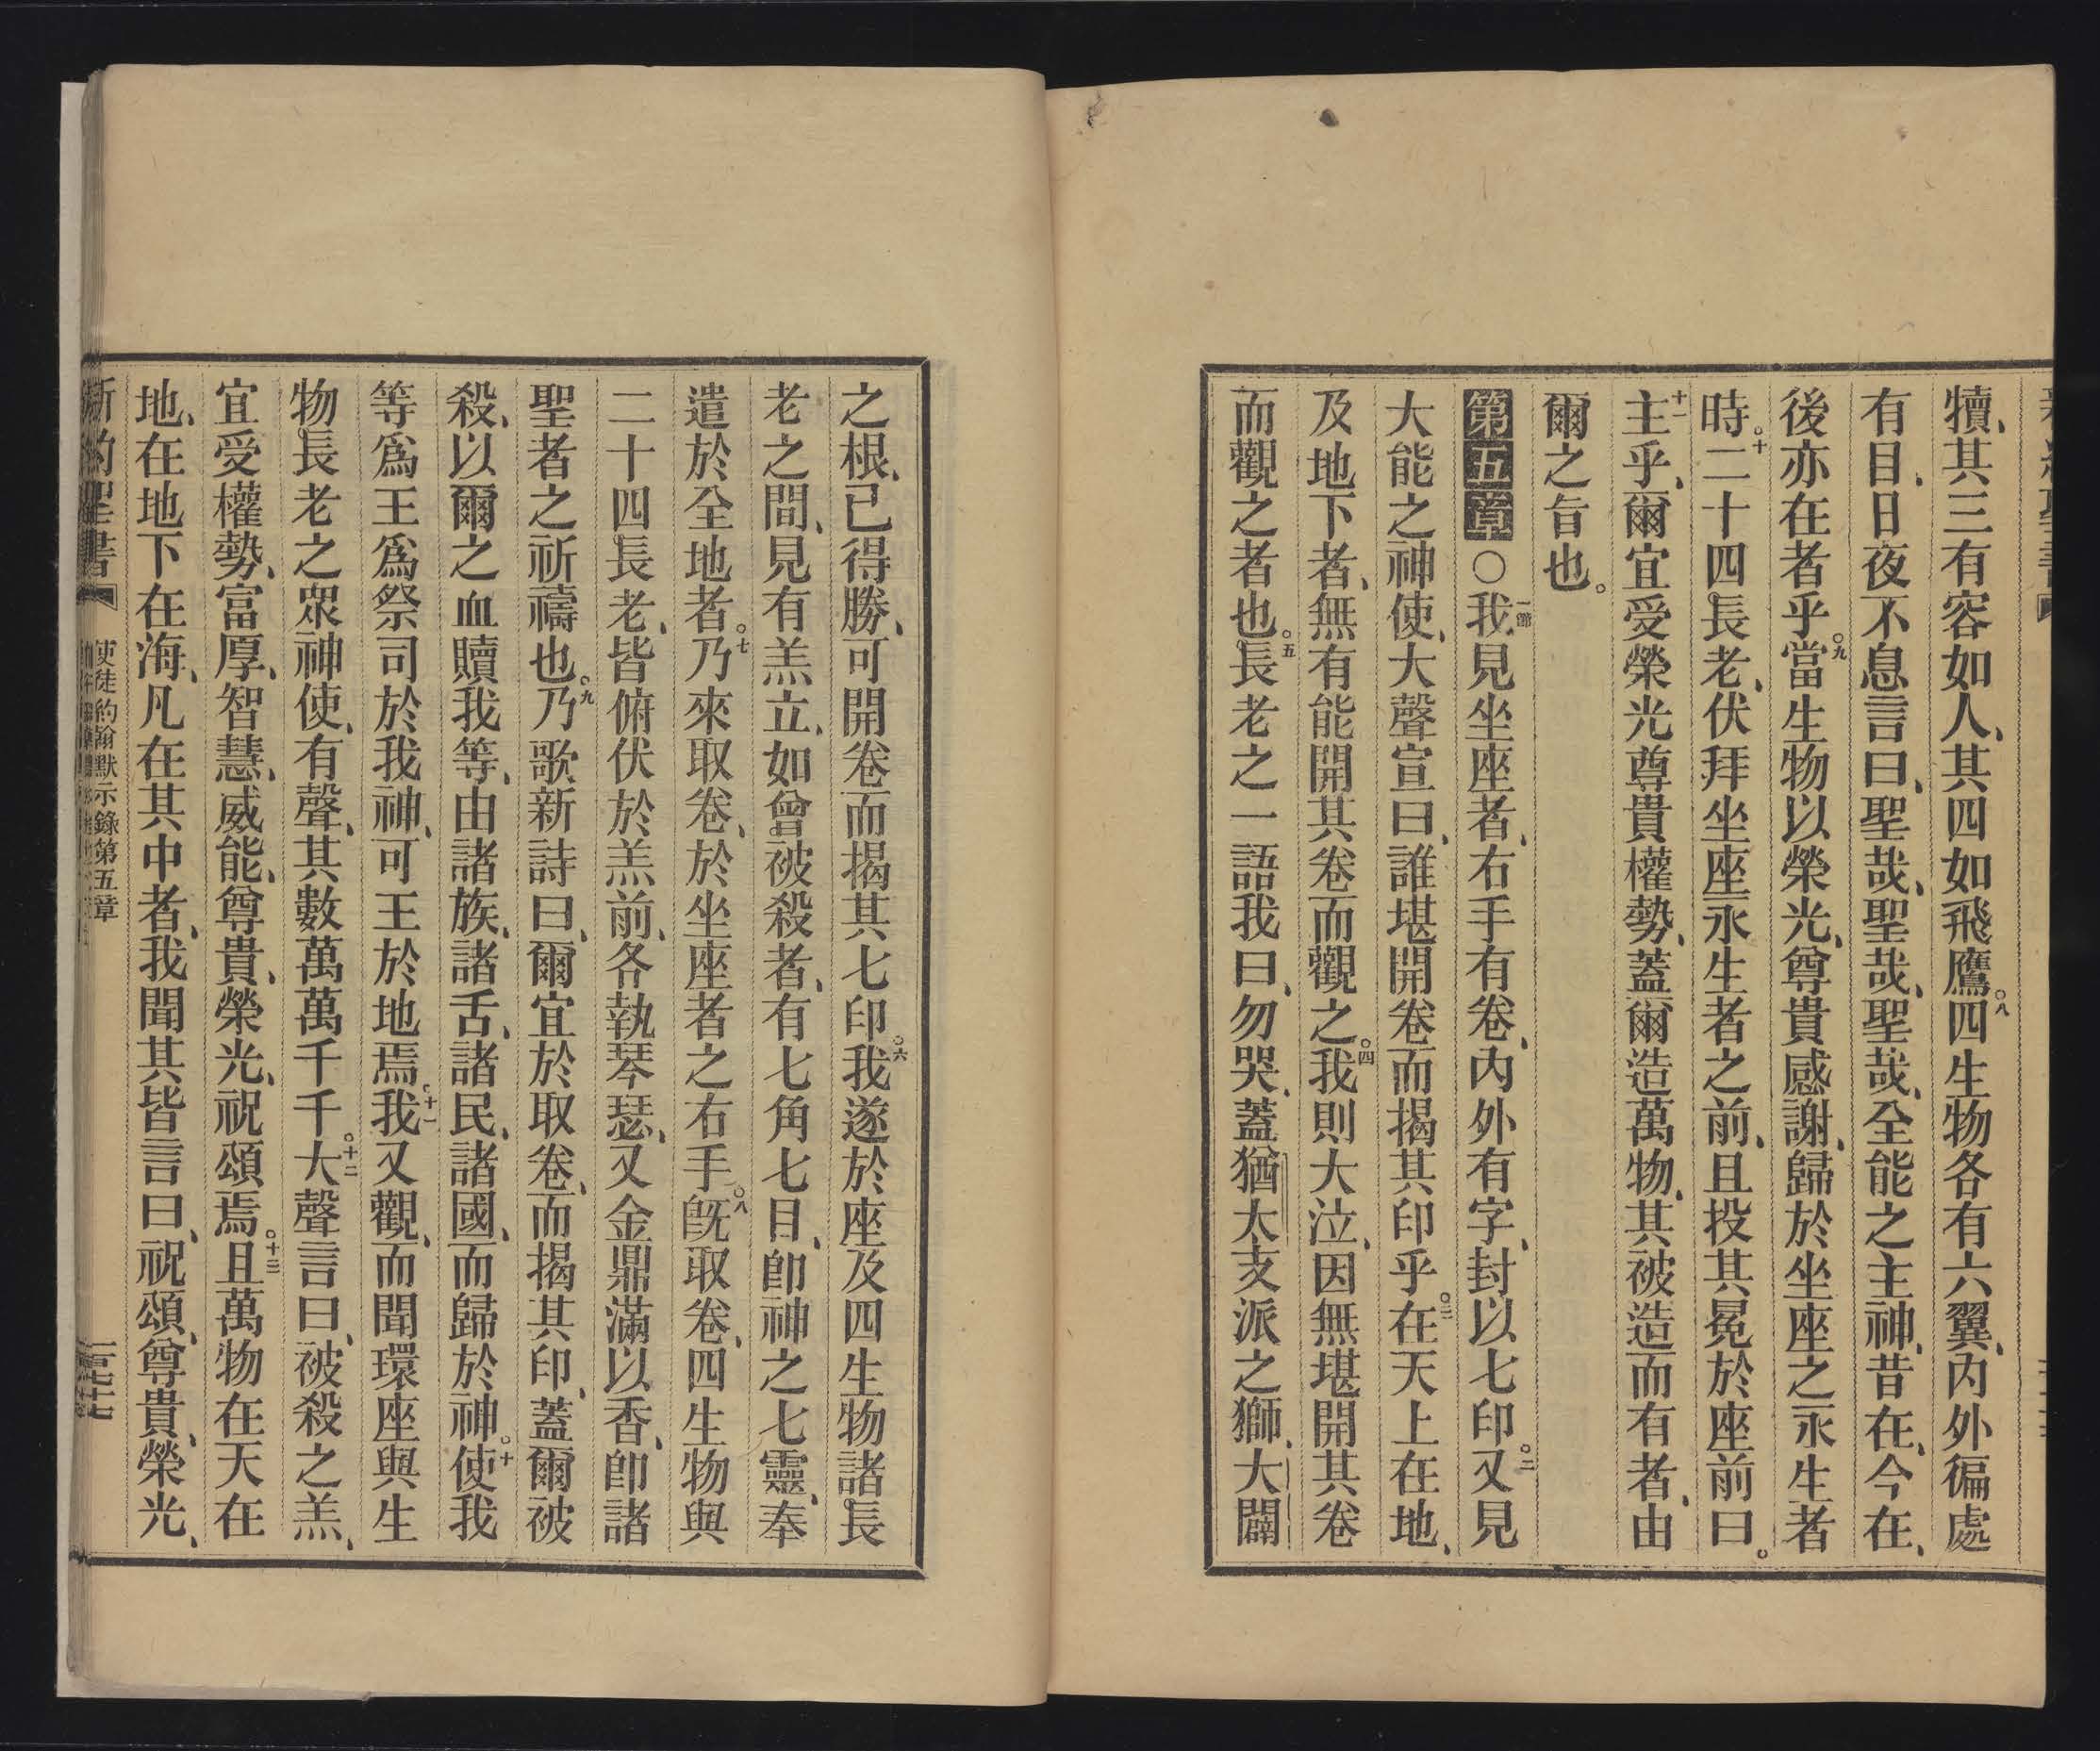 犢、其三有容如人、其四如飛鷹。八四生物各有六翼、內外徧處
有目、日夜不息言曰、聖哉、聖哉、聖哉、全能之主神、昔在、今在、
後亦在者乎。九當生物以榮光、尊貴感謝、歸於坐座之永生者
時。十二十四長老、伏拜坐座永生者之前、且投其冕於座前曰。
十一主乎、爾宜受榮光尊貴權勢、蓋爾造萬物、其被造而有者、由
爾之旨也。
第五章○一節我見坐座者、右手有卷、內外有字、封以七印。二又見
大能之神使、大聲宣曰、誰堪開卷而揭其印乎。三在天上在地、
及地下者、無有能開其卷而觀之。四我則大泣、因無堪開其卷
而觀之者也。五長老之一語我曰、勿哭、蓋猶大支派之獅、大闢
之根、已得勝、可開卷而揭其七印。六我遂於座及四生物諸長
老之間、見有羔立、如曾被殺者、有七角七目、卽神之七靈、奉
遣於全地者。七乃來取卷、於坐座者之右手。八旣取卷、四生物與
二十四長老、皆俯伏於羔前、各執琴瑟、又金鼎滿以香、卽諸
聖者之祈禱也。九乃歌新詩曰、爾宜於取卷、而揭其印、蓋爾被
殺、以爾之血贖我等、由諸族、諸舌、諸民、諸國、而歸於神。十使我
等爲王爲祭司於我神、可王於地焉。十一我又觀、而聞環座與生
物長老之眾神使、有聲、其數萬萬千千。十二大聲言曰、被殺之羔、
宜受權勢、富厚、智慧、威能、尊貴、榮光、祝頌焉。十三且萬物在天在
地、在地下在海、凡在其中者、我聞其皆言曰、祝頌、尊貴、榮光、
新約聖書
使徒約翰默示錄第五章